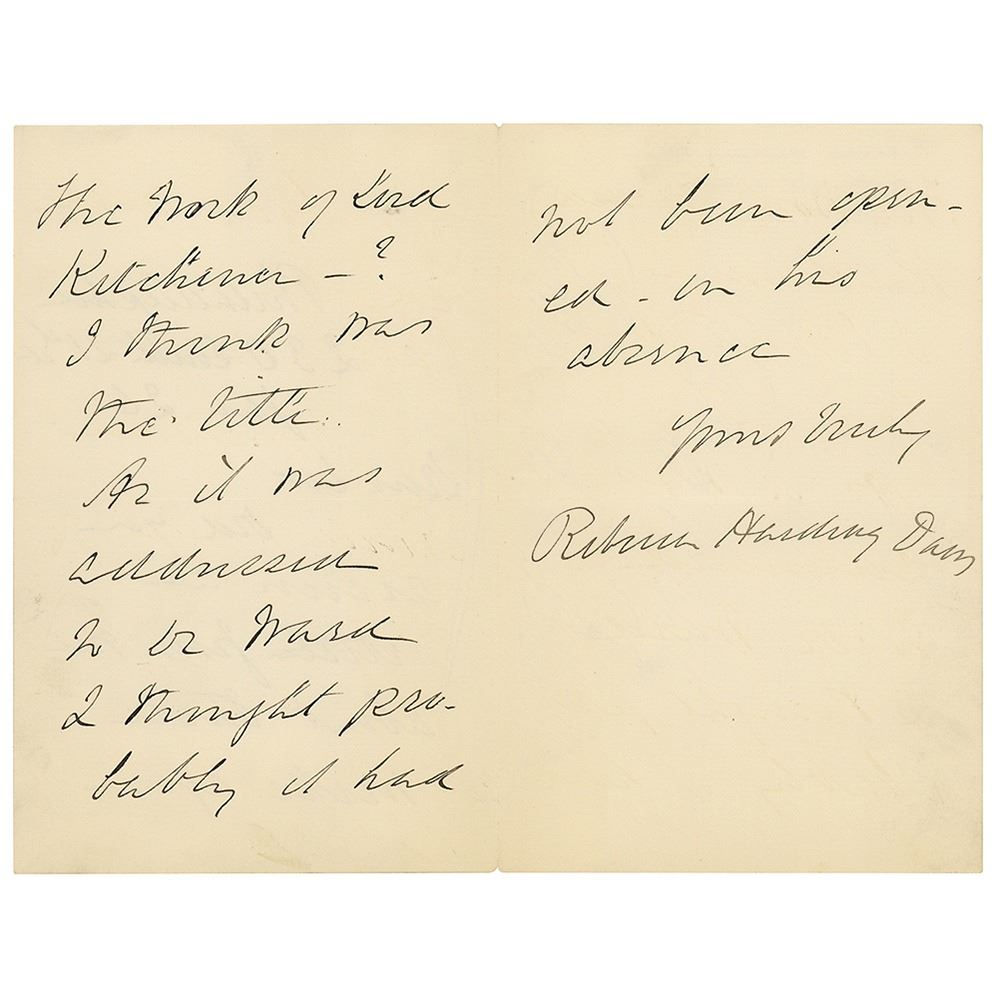 The Work of Lord
Kitchener – ?
I think was
the title.
As it was
addressed
to Dr Ward
I thought pro-
bably it had
not been open-
ed - in his
absence
Yours truly
Rebecca Harding Davis